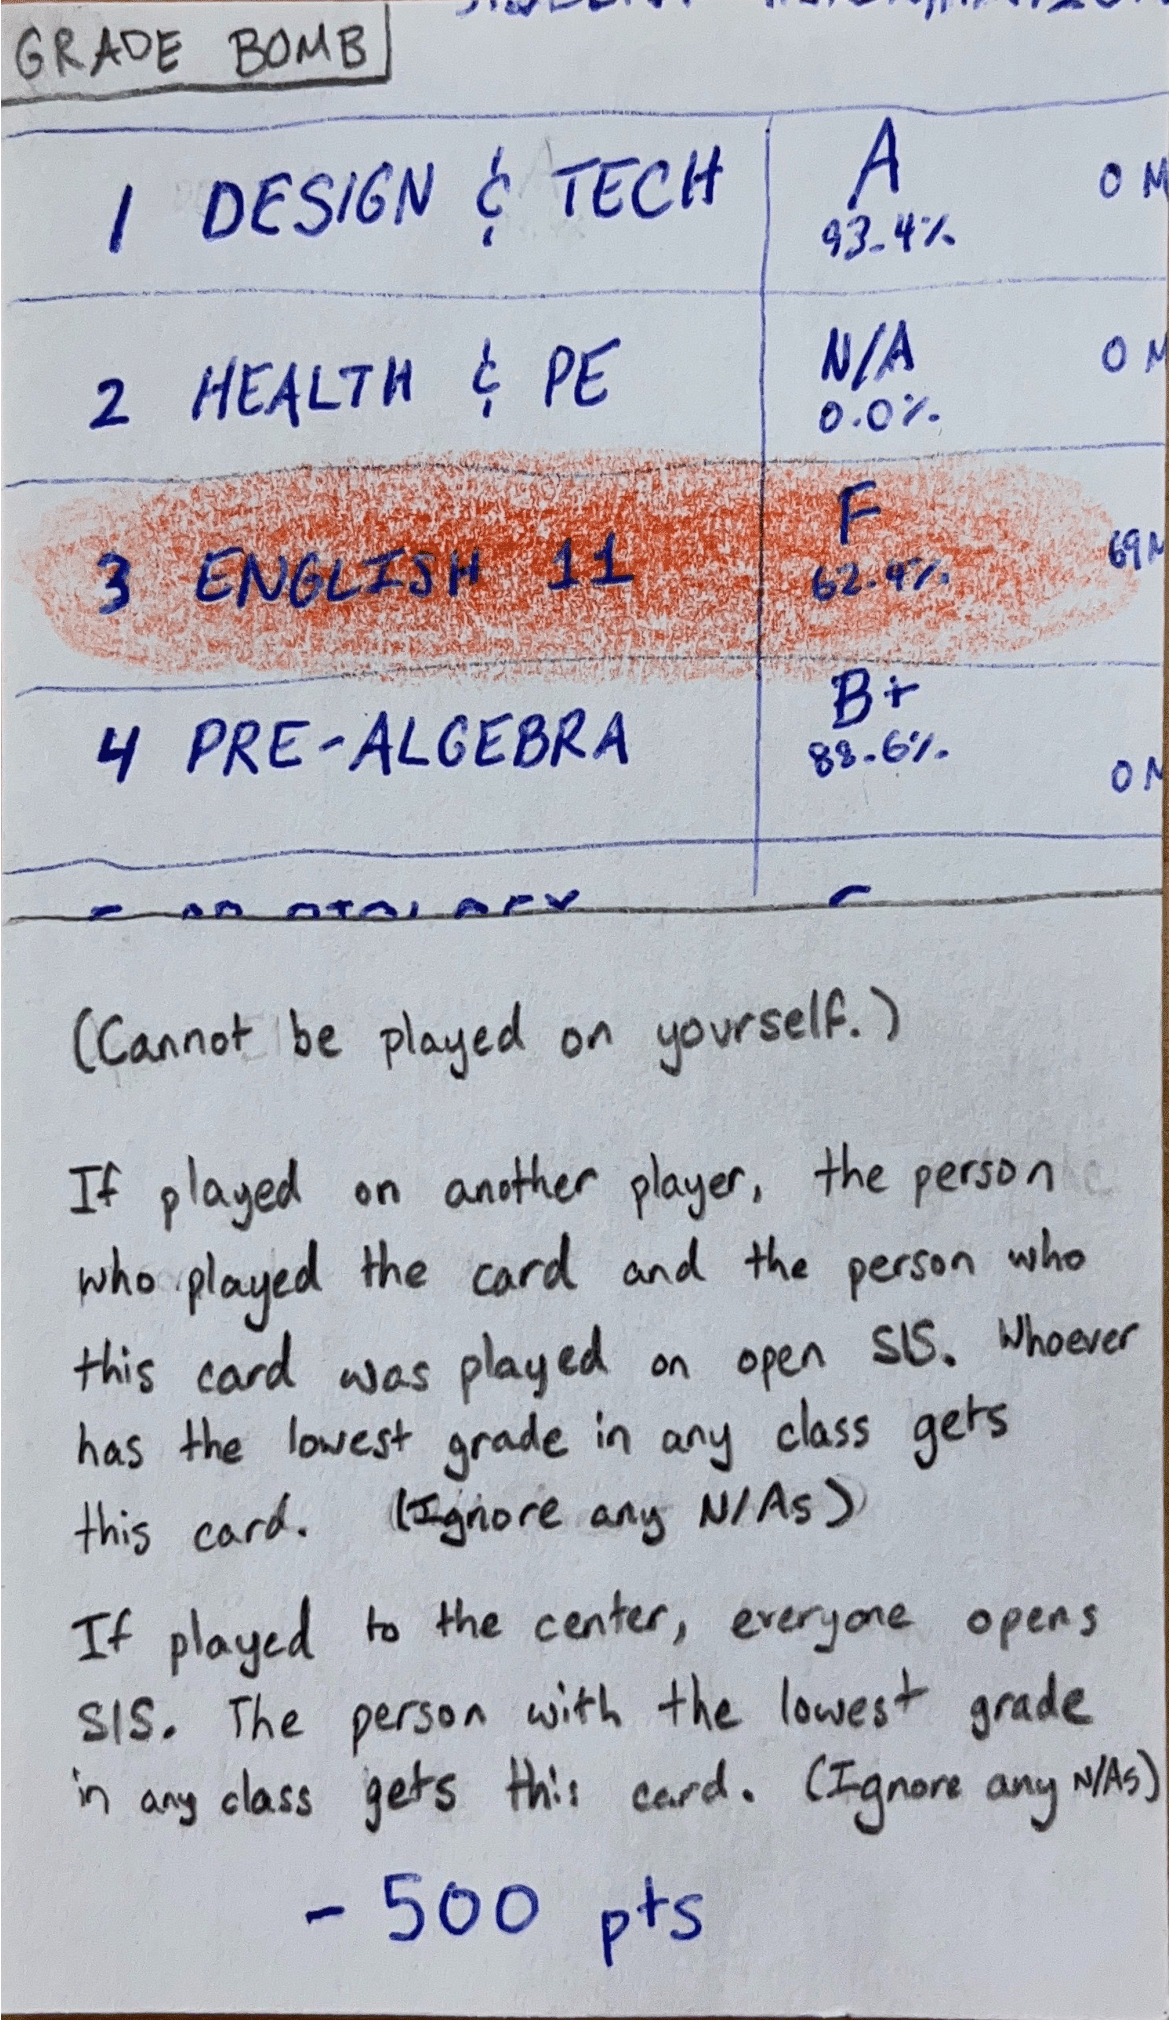 GRADE BOMB
1 DESIGN & TECH A 0 M
93.4%
2 HEALTH & PE N/A 0 M
0.0%
3 ENGLISH 11 F 69 M
62.4%
4 PRE-ALGEBRA B+
88.6% 0 M
(Cannot be played on yourself.)
If played on another player, the person
who played the card and the person who
this card was played on open SIS. Whoever
has the lowest grade in any class gets
this card. (Ignore any N/As)
If played to the center, everyone opens
SIS. The person with the lowest grade
in any class gets this card. (Ignore any N/As)
- 500 pts